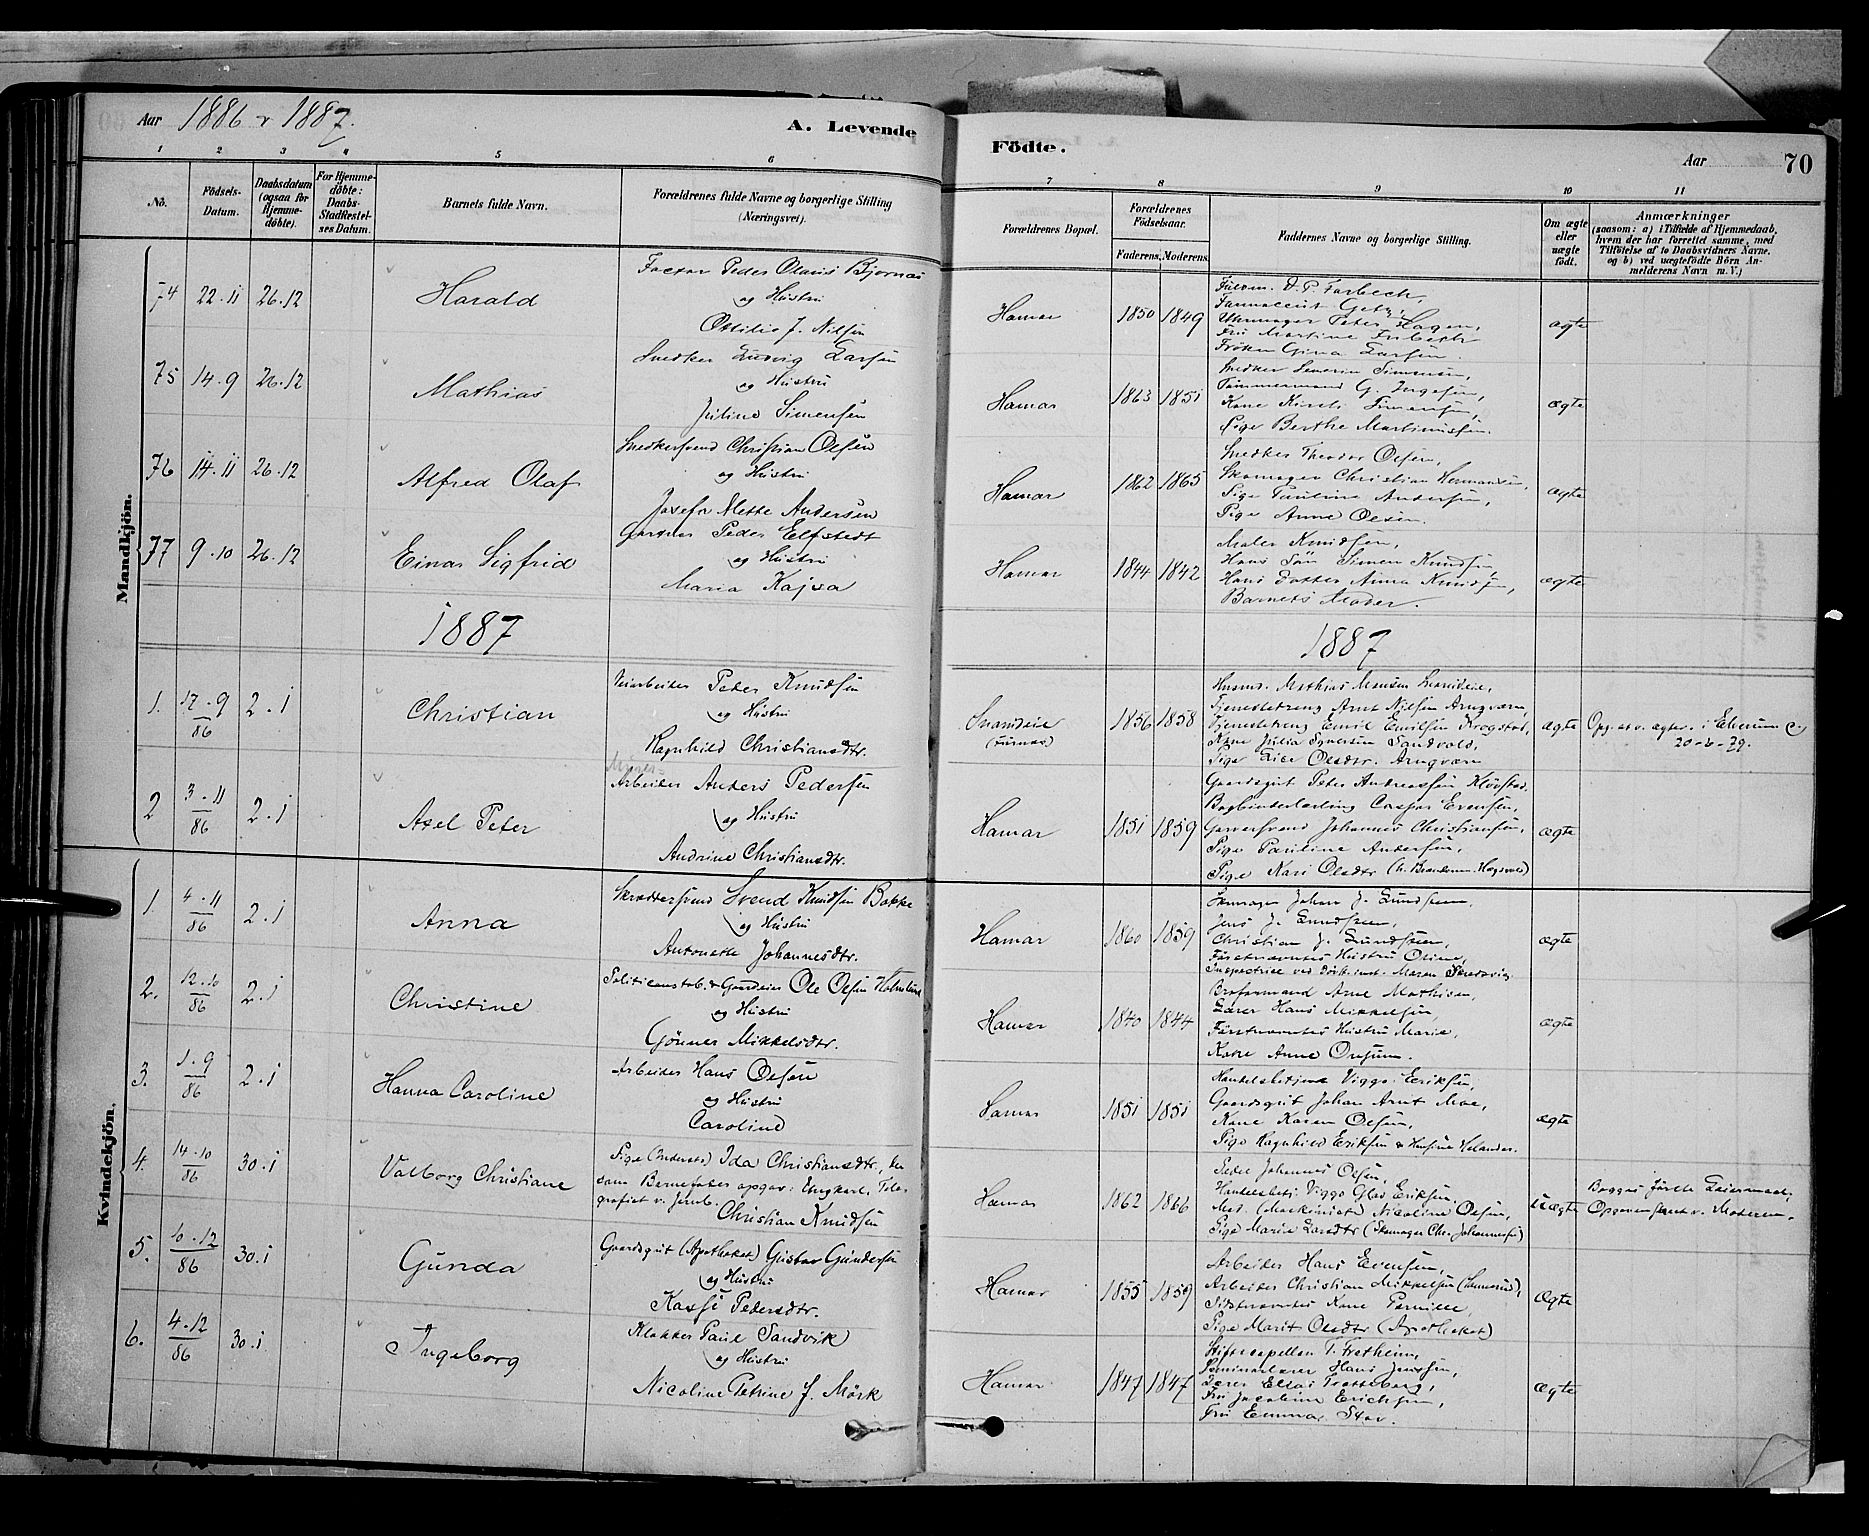 Aar 1886 & 1887.
A. Levende
Födte.
Aar 70
1 2 3 4 5 6 7 8 9 10 11
No.
Födsels-Datum.
Daabsdatum (ogsaa for Hjemme-döbte).
For Hjemme-döbte: Daabs-Stadfæstel-ses Datum.
Barnets fulde Navn.
Forældrenes fulde Navne og borgerlige Stilling (Næringsvei).
Forældrenes Bopæl.
Forældrenes Födselsaar.
Faderens. Moderens.
Faddernes Navne og borgerlige Stilling.
Om ægte eller uægte födt.
Anmærkninger
(saasom: a) i Tilfælde af Hjemmedaab, hvem der har forrettet samme, med Tilföielse af to Daabsvidners Navne. og b) ved uægtefödte Börn An-melderens Navn m. V.)
Mandkjön.
74 22.11 26.12 Harald
Factor Peder Olaus Bjornæs
og Hustru
Ottilie J. Nilsen
Hamar 1850 1849
Frøken Gina Larsen.
ægte
75 14.9 26.12 Mathias
Snedker Ludvig Larsen
og Hustru
Juline Simensen
Hamar 1863 1851
Snedker Severin Simensen,
Tømmermand G. Ingesen,
Pige Berthe Martinussen.
ægte
76 14.11 26.12 Alfred Olaf
Snedkersvend Christian Olsen
og Hustru
Josefa Mette Andersen
Hamar 1862 1865
Snedker Theodor Olsen,
Skomager Christian Hermansen,
Pige Pauline Andersen,
Pige Anne Olsen.
ægte
77 9.10 26.12 Einar Sigfrid
Garver Peder Elfstedt
og Hustru
Maria Kajsa
Hamar 1844 1842
Maler Knudsen,
Hans Søn Simen Knudsen
Hans Datter Anna Knudsen,
Barnets Moder.
ægte
1887
1887
1. 17.9/86 2.1 Christian
Veiarbeider Peter Knudsen
og Hustru
Ragnhild Christiansdtr.
Svarideie
(Furnæs)
1856 1858
Husmd. Mathias Monsen Svarideie,
Tjenestedreng Arnt Nilsen Arngværn,
Tjenestedreng Emil Emilsen Krogstad,
Kone Julia Syversen Sandvold,
Pige Lise Olsdtr. Arngværn
ægte
Opg. at v. ægtev. i Elverum
20-6-79.
2 3.11/86 2.1 Axel Peter
Arbeider Anders Pedersen
og Hustru
Andrine Christiansdtr.
Hamar 1851 1859
Gaardsgut Peter Andreassen Klövstad,
Bogbinderlærling Caspar Evensen,
Garversvend Johannes Christiansen,
Pige Pauline Andersen,
Pige Kari Olsdtr
ægte
Kvindekjön.
1. 4.11/86 2.1 Anna
Skræddersvend Svend Knudsen Bakke
og Hustru
Antonette Johannesdtr.
Hamar 1860 1859
Skomager Johan J. Lundsveen,
Jens J. Lundsveen,
Christian J. Lundsveen,
Förstnævntes Hustru Oline,
ægte
2. 12.10/86 2.1 Christine
Politiconstab. & Gaardeier Ole Olsen Holmlund
og Hustru
Gönner Mikkelsdtr.
Hamar 1840 1844
Broformand Arne Mathisen,
Lærer Hans Mikkelsen,
Förstnævntes Hustru Marie,
Kone Anne Onsum.
ægte
3. 1.9/86 2.1 Hanna Caroline
Arbeider Hans Olsen
og Hustru
Caroline
Samar 1851 1851
Handelsbetjent Viggo Eriksen,
Gaardsgut Johan Arnt Moe,
Kone Karen Olsen,
Pige Ragnhild Eriksen & Hansine Helander.
ægte
4. 14.10/86 30.1 Valborg Christiane
Pige (Inderst) Ida Christiansdtr., der
som Barnefader opgav: Ungkarl, Tele-
grafist v. Jernb.
Christian Knudsen
Hamar 1862 1866
Peder Johannes Olsen,
Handelsbetj. Viggo Olaf Eriksen,
Mad. (Maskinist) Nicoline Olsen,
Pige Marie Larsdtr (Skomager Chr. Johannesen)
uægte
Begges förste Leiermaal,
Opgaven skeet v. Moderen.
5. 6.12/86 30.1 Gunda
Gaardsgut (Apotheket) Gustav Gundersen
og Hustru
Kasse Pedersdtr.
Hamar 1855 1859
Arbeider Hans Evensen,
Arbeider Christian Mikkelsen
Sidstnævntes Kone Pernille,
Pige Marit Olsdtr (Apotheket)
ægte
6. 4.12/86 30.1 Ingeborg
Klokker Paul Sandvik
og Hustru
Nicoline Petrine f. Mörk
Hamar 1847 1847
Stiftscapellan T. Fretheim,
Seminarlærer Hans Jenssen,
Lærer Ellas Tretteberg,
Fru Jacobine Erichsen,
Fru Emma Stav.
ægte